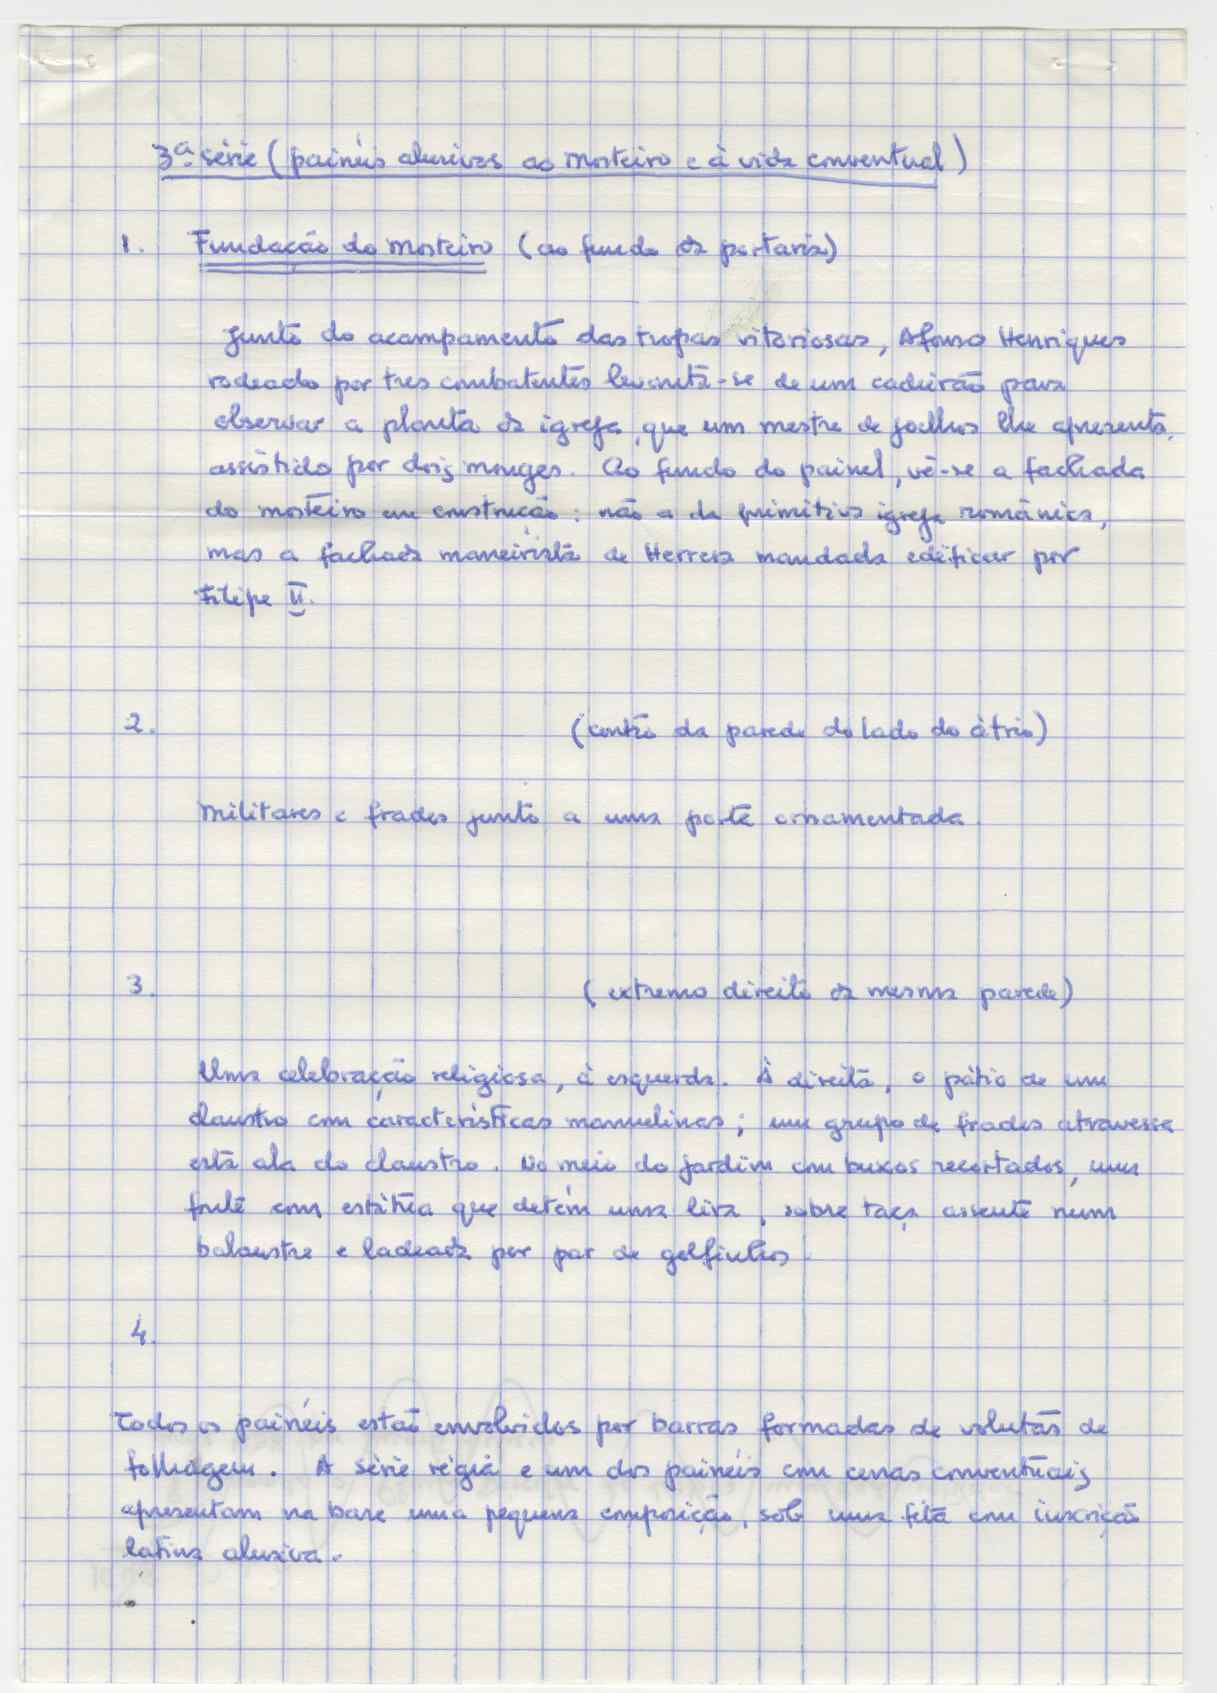 3ª série (painéis alusivos ao mosteiro e à vida conventual)
1. Fundação do mosteiro (ao fundo da portaria)
Junto do acampamento das tropas vitoriosas, Afonso Henriques
rodeado por tres combatentes levanta-se de um cadeirão para
observar a planta da igreja, que um mestre de joelhos lhe apresenta,
assistido por dois monges. Ao fundo do painel, vê-se a fachada
do mosteiro em construção: não a da primitiva igreja românica,
mas a fachada maneirista de Herrera mandada edificar por
Filipe II.
2. (centro da parede do lado do átrio)
Militares e frades junto a uma porta ornamentada
3. (extremo direito da mesma parede)
Uma celebração religiosa, à esquerda. À direita, o pátio de um
claustro com características manuelinas; um grupo de frades atravessa
esta ala do claustro. No meio do jardim com buxos recortados, uma
fonte com estátua que detém uma lira, sobre taça assente num
balaustre e ladeada por par de golfinhos.
4.
Todos os painéis estão envolvidos por barras formadas de volutas de
folhagem. A série régia e um dos painéis com cenas conventuais
apresentam na base uma pequena composição, sob uma fita com inscrição
latina alusiva.